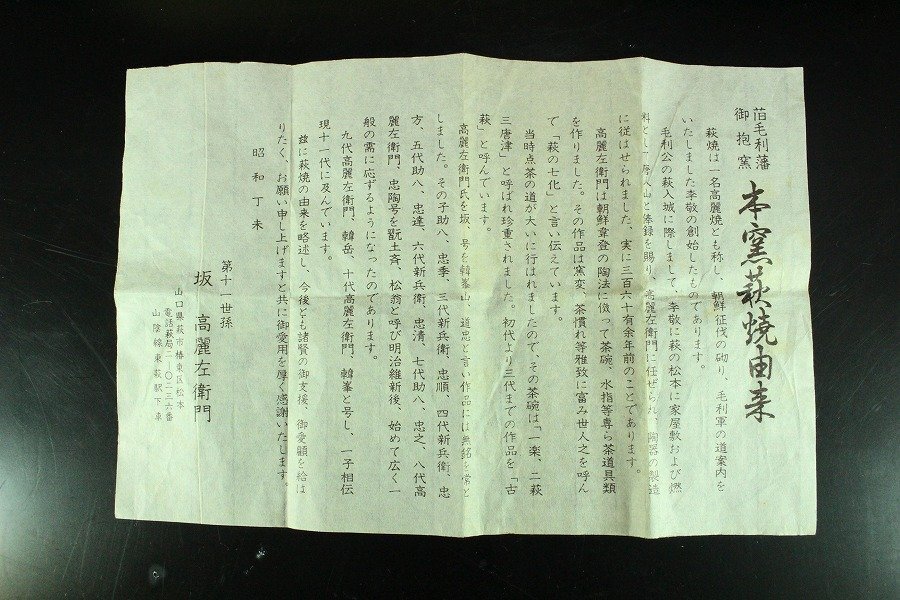 旧毛利藩
御抱窯
本窯萩焼由来
萩焼は一名高麗焼とも称し、朝鮮征伐の砌り、毛利軍の道案内を
いたしました李敬の創始したものであります。
毛利公の萩入城に際しまして、李敬に萩の松本に家屋敷および燃
料として唐人山と俸録を賜り、高麗左衛門に任ぜられ、陶器の製造
に従はせられました、実に三百六十有余年前のことであります。
高麗左衛門は朝鮮韋登の陶法に倣って茶碗、水指等専ら茶道具類
を作りました。その作品は窯変、茶慣れ等雅致に富み世人之を呼ん
で「萩の七化」と言い伝えています。
当時点茶の道が大いに行はれましたので、その茶碗は「一楽、二萩
三唐津」と呼ばれ珍重されました。初代より三代までの作品を「古
萩」と呼んでいます。
高麗左衛門氏を坂、号を韓峯山、道忠と言い作品には無銘を常と
しました。その子助八、忠季、三代新兵衛、忠順、四代新兵衛、忠
方、五代助八、忠達、六代新兵衛、忠清、七代助八、忠之、八代高
麗左衛門、忠陶号を翫土斉、松翁と呼び明治維新後、始めて広く一
般の需に応ずるようになったのであります。
九代高麗左衛門、韓岳、十代高麗左衛門、韓峯と号し、一子相伝
現十一代に及んでいます。
玆に萩焼の由来を略述し、今後とも諸賢の御支援、御愛顧を給は
りたく、お願い申し上げますと共に御愛用を厚く感謝いたします。
昭和丁未
第十一世孫
坂高麗左衛門
山口県萩市椿東区松本
電話萩局二〇二三六番
山陰線東萩駅下車